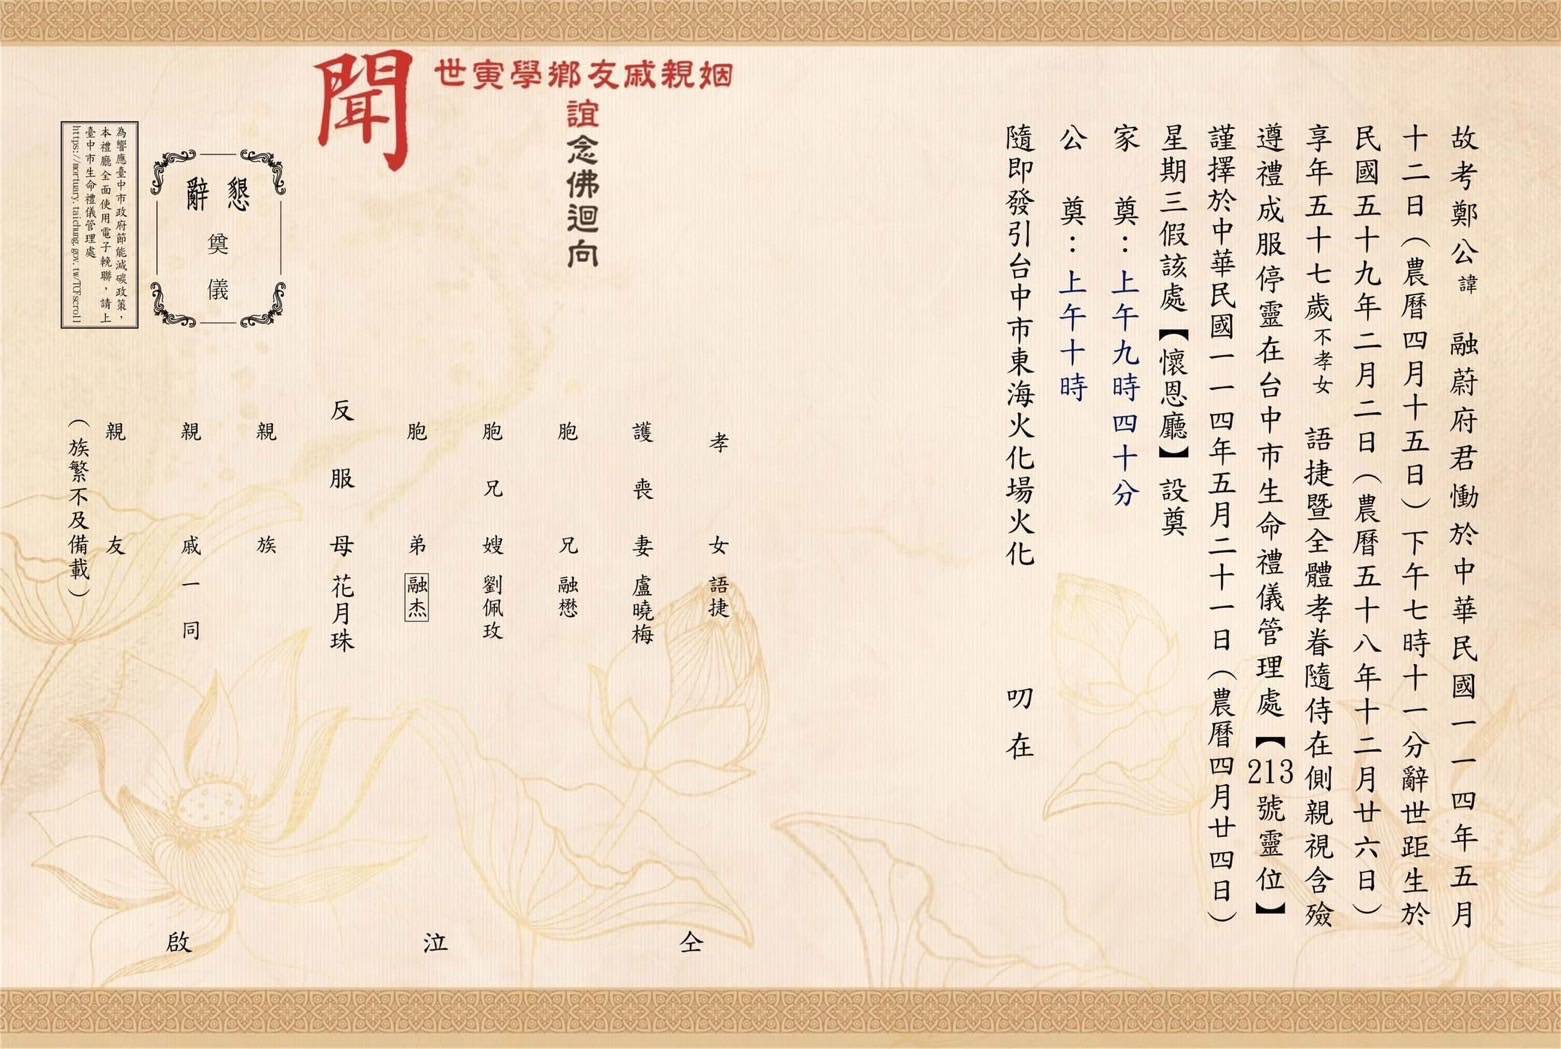 故考鄭公諱　融蔚府君慟於中華民國一一四年五月
十二日（農曆四月十五日）下午七時十一分辭世距生於
民國五十九年二月二日（農曆五十八年十二月廿六日）
享年五十七歲不孝女　語捷暨全體孝眷隨侍在側親視含殮
遵禮成服停靈在台中市生命禮儀管理處【213號靈位】
謹擇於中華民國一一四年五月二十一日（農曆四月廿四日）
星期三假該處【懷恩廳】設奠
家　奠：上午九時四十分
公　奠：上午十時
隨即發引台中市東海火化場火化　　叨在
姻親戚友鄉學寅世
誼念佛迴向
聞
孝女　語捷
護喪妻　盧曉梅
胞兄　融懋
胞兄嫂　劉佩玫
胞弟　融杰
反服母　花月珠
親族
親戚一同
親友
（族繁不及備載）
仝　泣　啟
懇辭
奠儀
為響應臺中市政府節能減碳政策，
本禮廳全面使用電子輓聯，請上
臺中市生命禮儀管理處
https://mortuary.taichung.gov.tw/TCFscroll